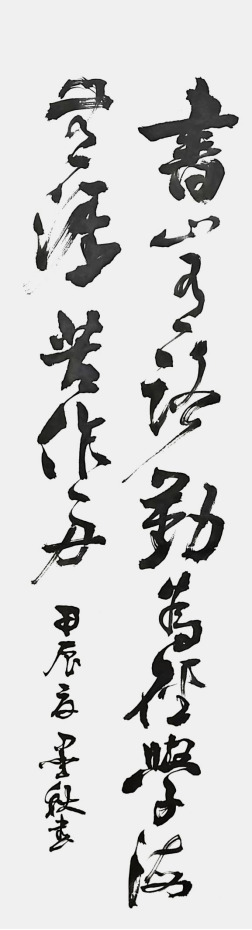 書山有路勤為徑學海
無涯苦作舟
甲辰夏墨秋書